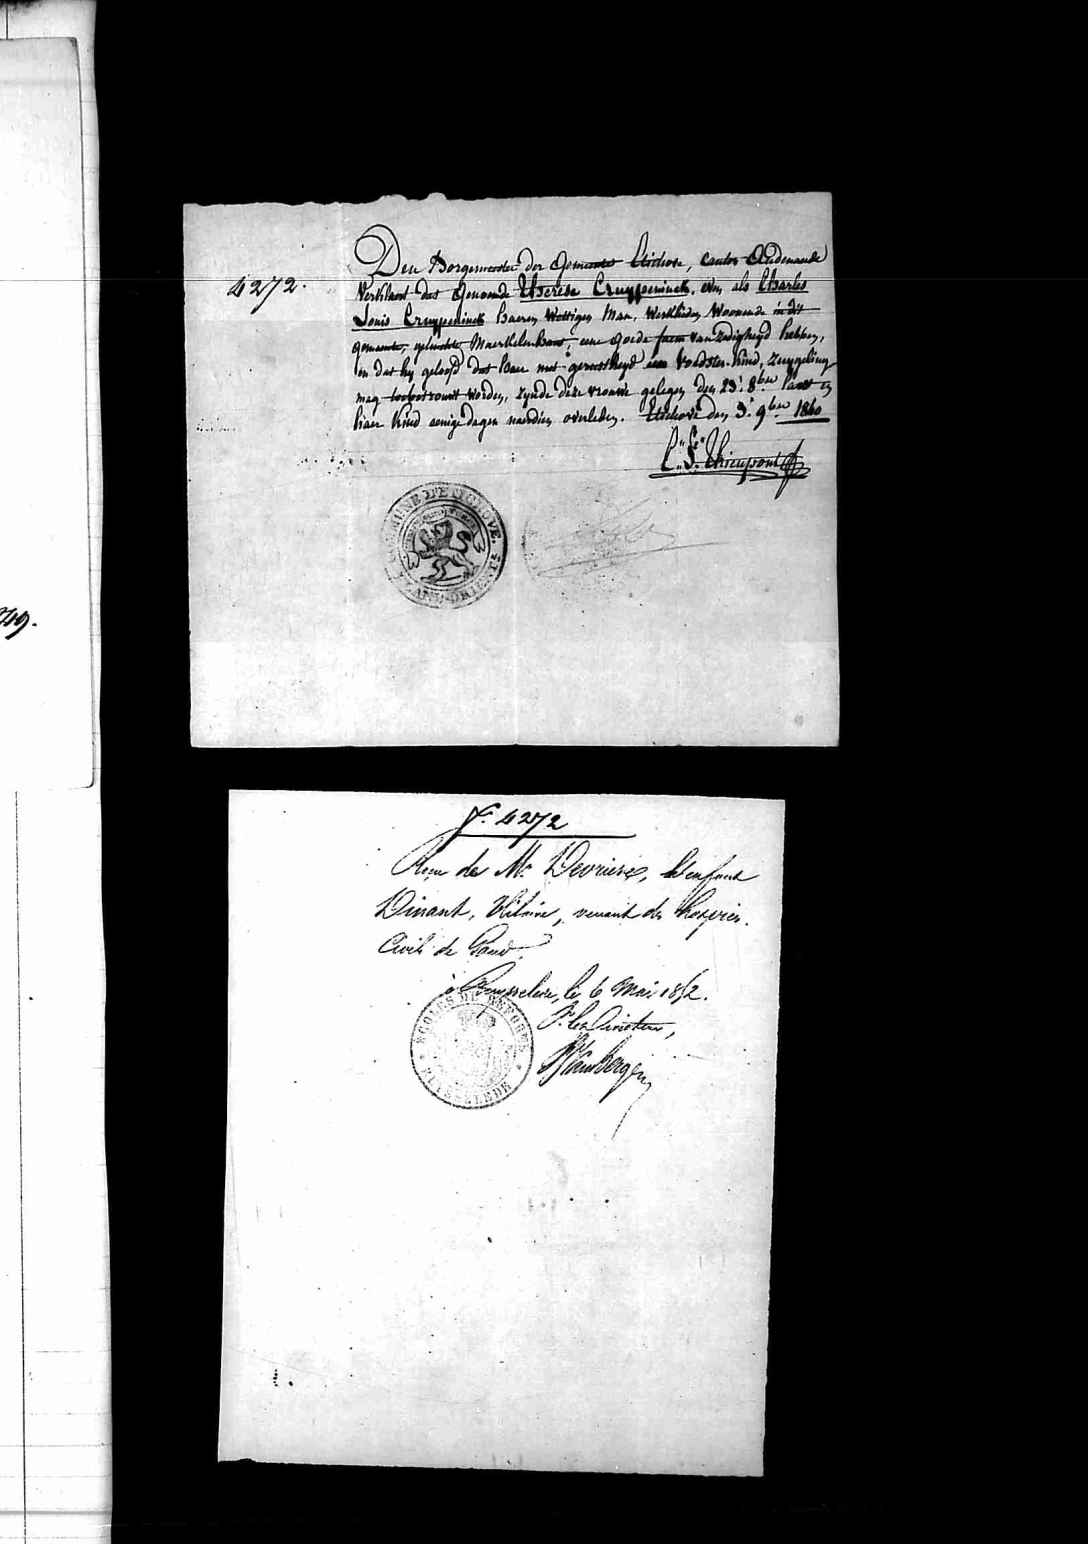 4272.
Den Borgemeester der Gemeente Etichove, canton Audenaarde
Verklaert dat Genoemde Therese Cruypeninck, en als Charles
Louis Cruypeninck haeren Wettigen Man, Werklieden Woonende in dit
gemeente, gehuchte Maerkelenbaer, eene goede van Zedigheyd hebben,
en dat hy geloofd dat haer met gerustheyd een Voedster-Kind, Zuygeling
mag toebetrouwt worden, zynde deze vrouwe gelegen den 23 8ber laest en
haer Kind eenige dagen naerdien overleden. Etichove den 3 9ber 1840
COMMUNE D'ETICHOVE.
FLAND. ORIENT.
749.
N° 4272
Reçu de Mr Devriere, l'enfant
Dinant, Hilaire, venant des hospices
Civils de Gand.
à Ruysselede, le 6 Mai 1852.
P. le Directeur,
ECOLES DE REFORME
RUYSSELEDE